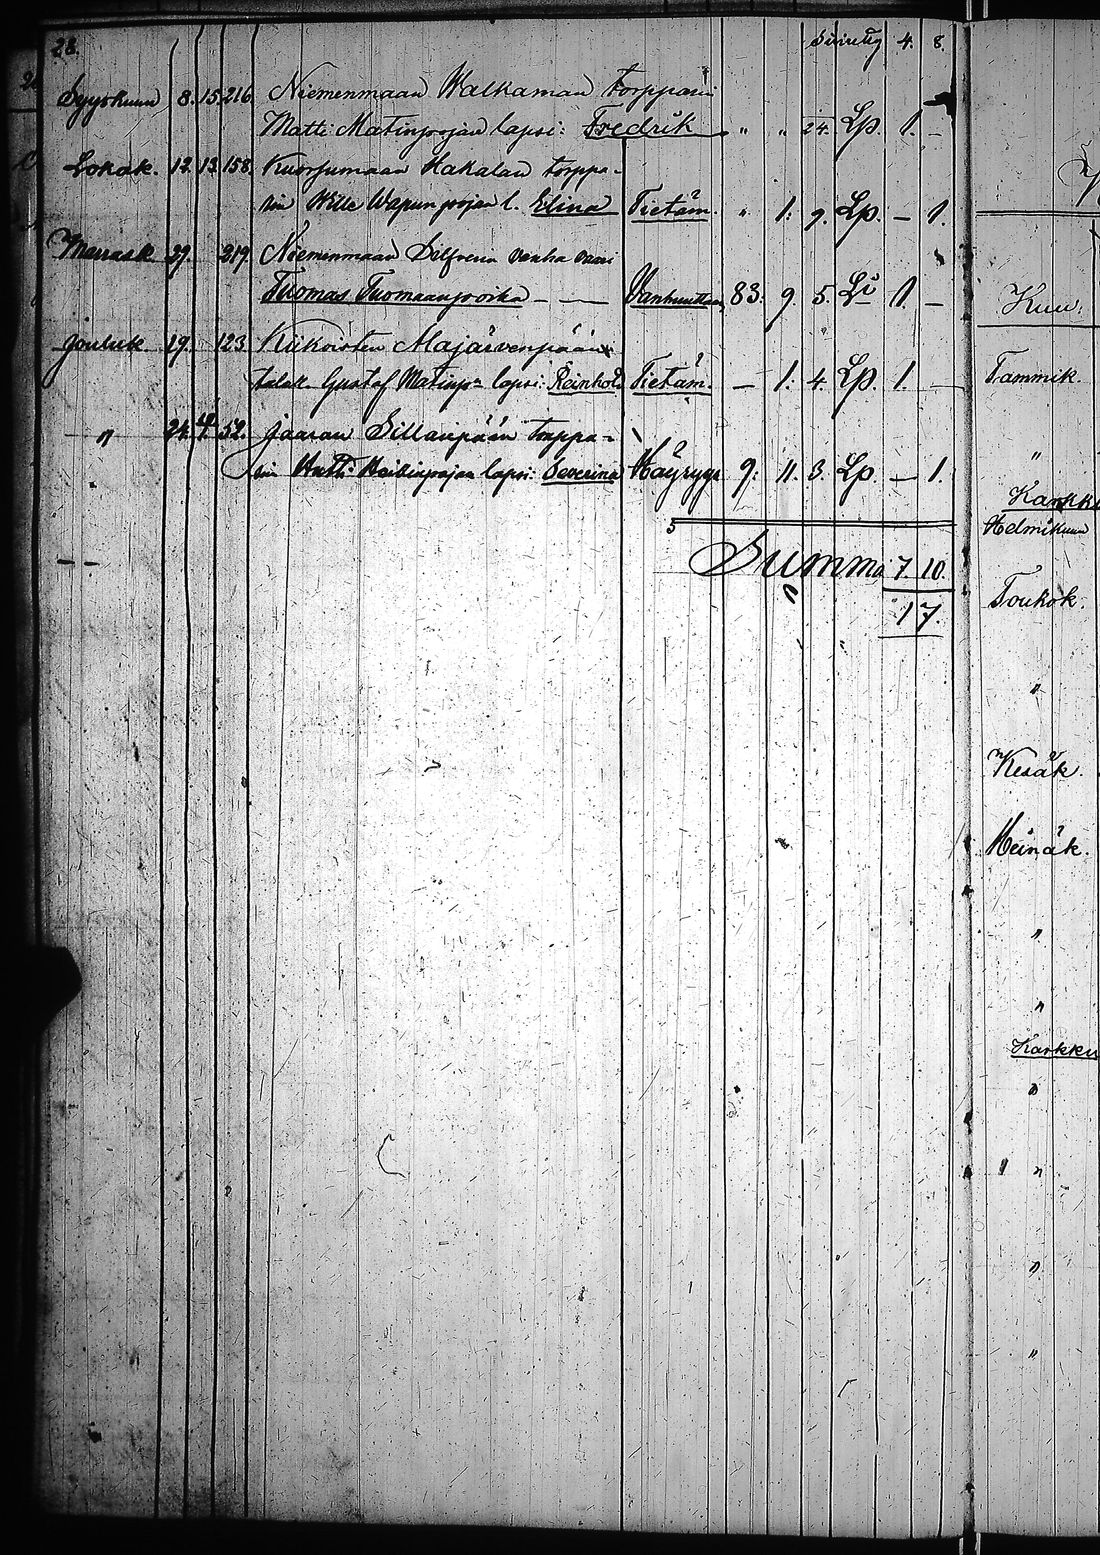 28. Siirretty 4. 8.
Syyskuun 8. 15. 216. Niemenmaan Walkaman torpparin
Matti Matinpojan lapsi: Fredrik " " 24. Lp. 1. –
Lokak. 12. 13. 158. Kuorsumaan Hakalan torppa-
rin Wille Wapunpojan l. Elina Tietäm. " 1. 9. Lp. – 1.
Marrask. 29. 219. Niemenmaan Silfvena vanha vaari
Tuomas Tuomaanpoika – — Vanhuuttaan 83. 9. 5. Li 1. –
Jouluk. 19. 123. Kiikoisten Majärvenpään
talak. Gustaf Matinp= lapsi: Reinhold Tietäm. – 1. 4. Lp. 1. –
" 24. 52. Jaaran Sillanpään torppa-
rin Antti Heikinpojan lapsi: Severina 9. 11. 3. Lp. – 1.
5
Summa 7. 10.
17.
Kuu:
Tammik.
"
Karkku
Helmikuun
Toukok.
"
Kesäk.
Heinäk.
"
"
Karkku
"
" "
"
"